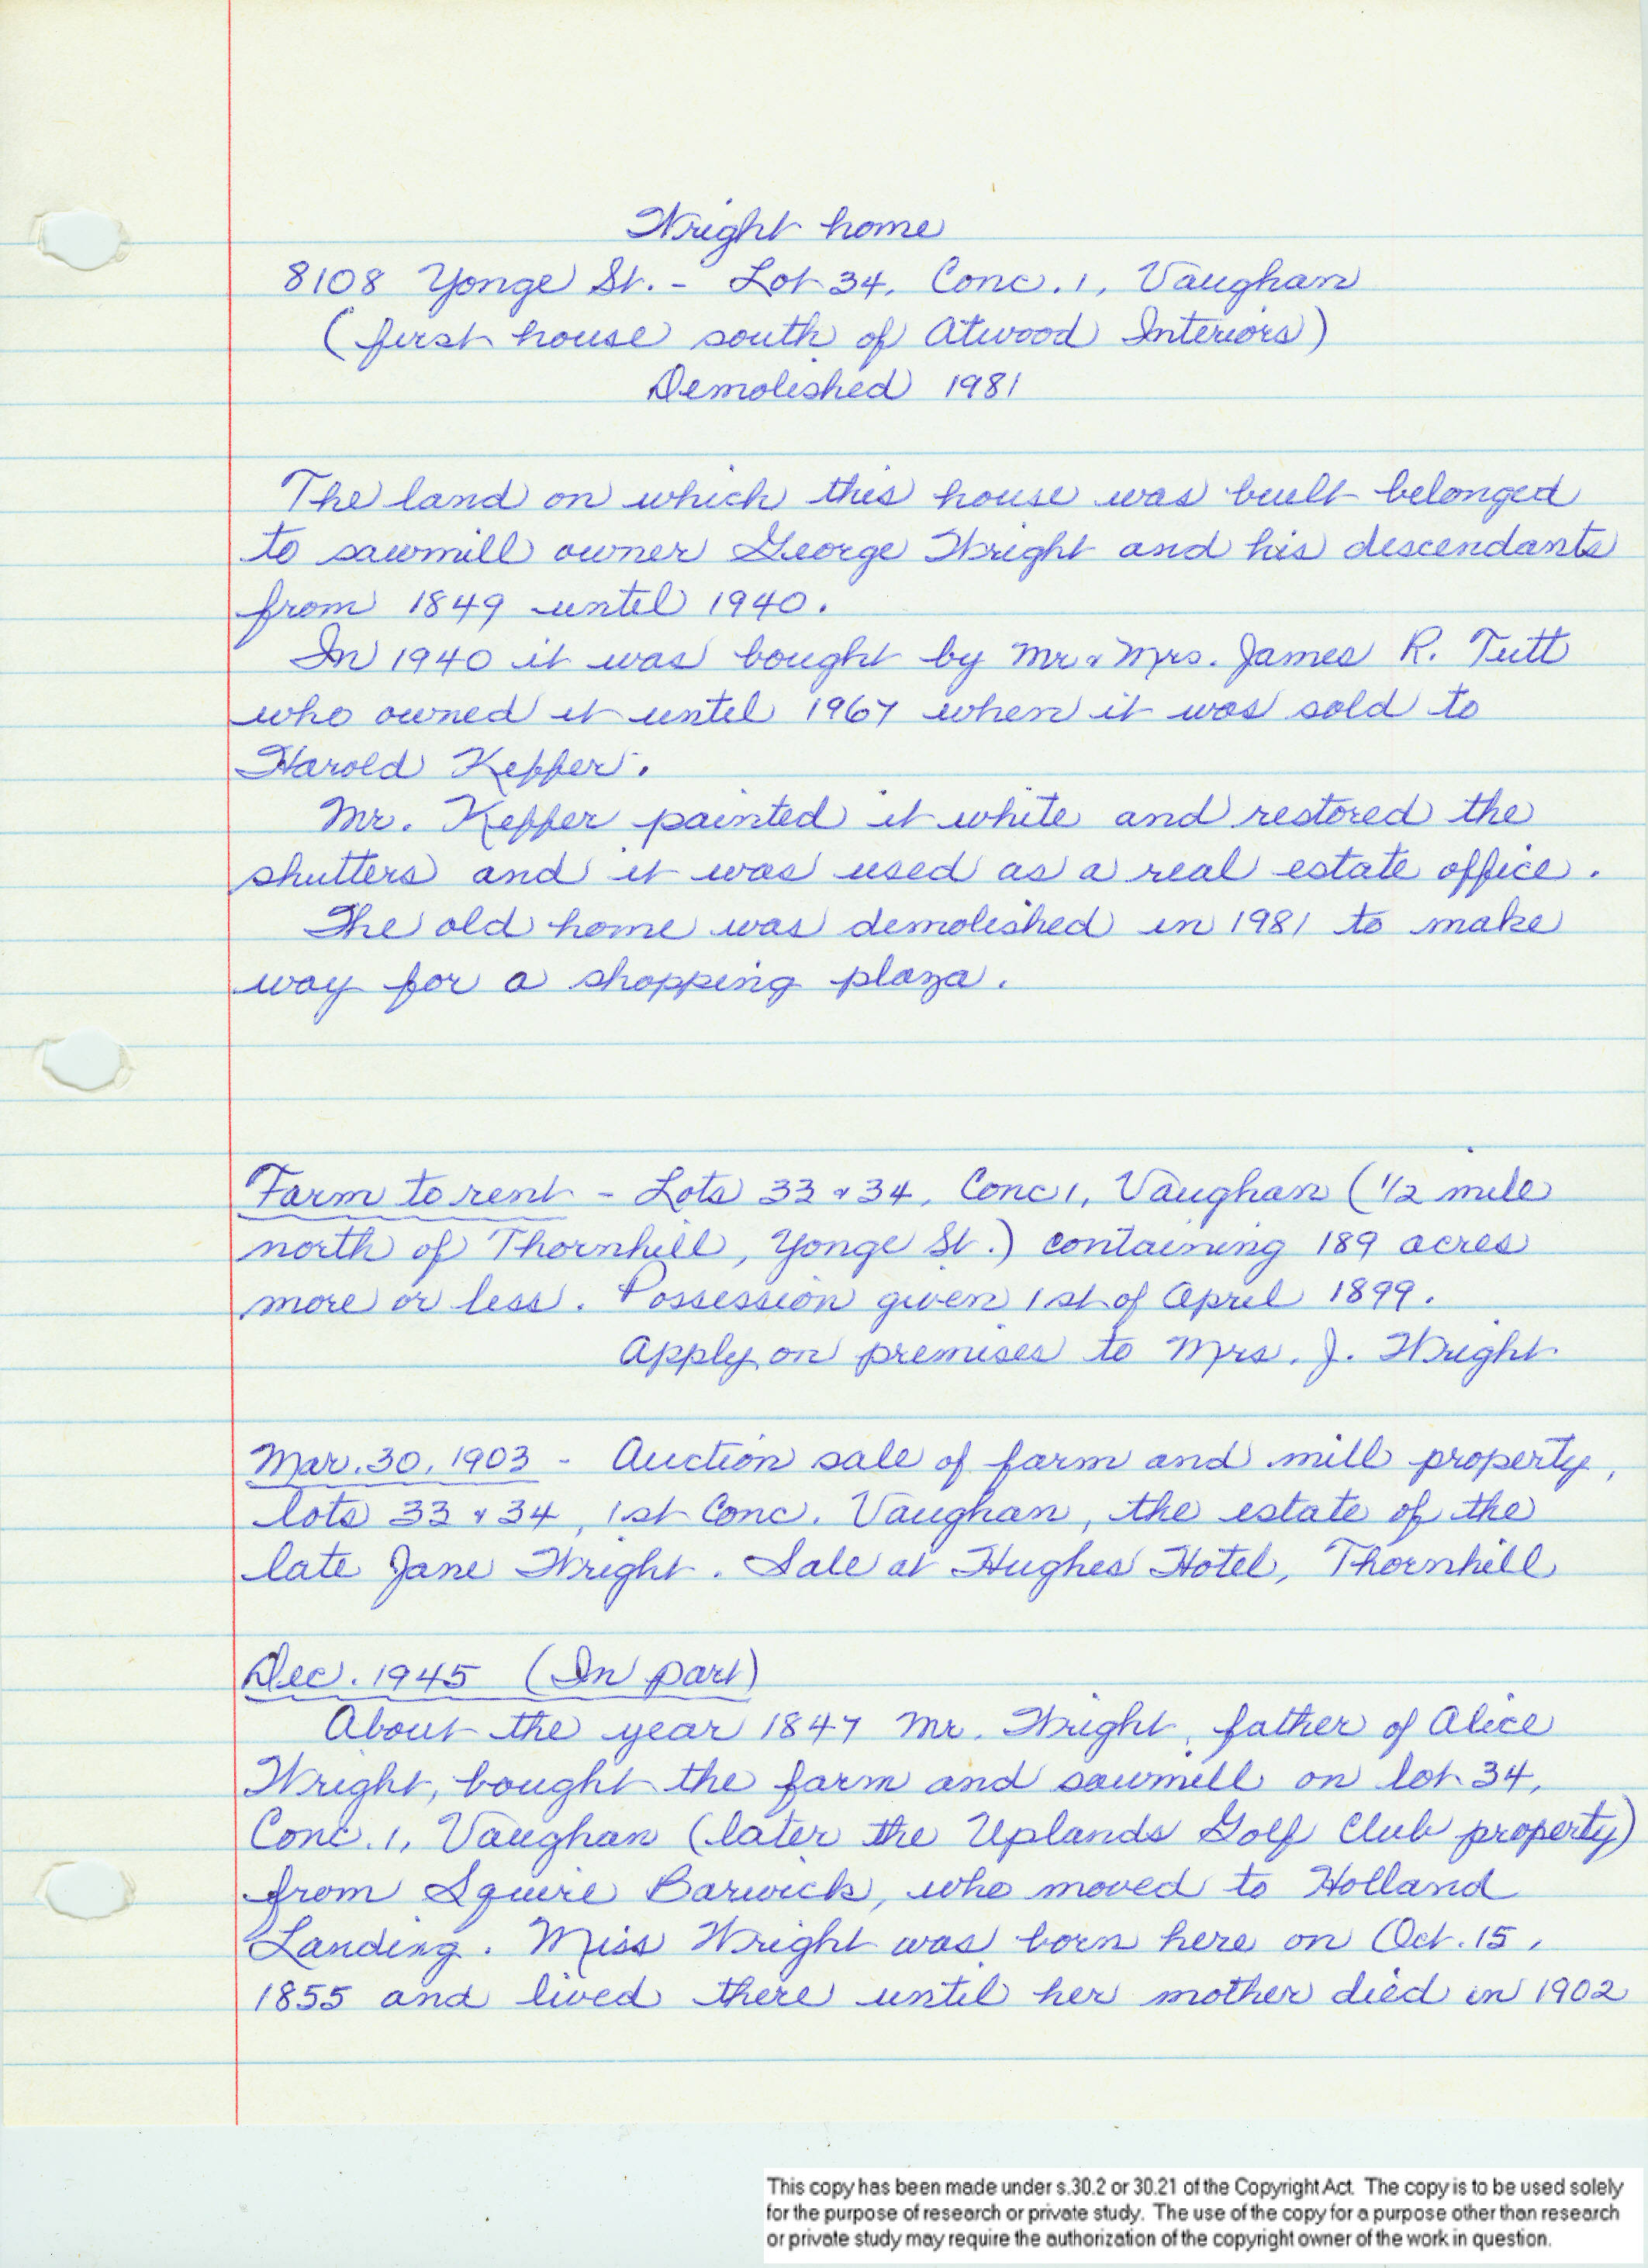 Wright home
8108 Yonge St. - Lot 34, Conc. 1, Vaughan
(first house south of Atwood Interiors)
Demolished 1981
The land on which this house was built belonged
to sawmill owner George Wright and his descendants
from 1849 until 1940.
In 1940 it was bought by Mr & Mrs. James R. Tutt
who owned it until 1967 when it was sold to
Harold Keffer.
Mr. Keffer painted it white and restored the
shutters and it was used as a real estate office.
The old home was demolished in 1981 to make
way for a shopping plaza.
Farm to rent - Lots 33 & 34, Conc 1, Vaughan (1/2 mile
north of Thornhill, Yonge St.) containing 189 acres
more or less. Possession given 1st of April 1899.
Apply on premises to Mrs. J. Wright.
Mar. 30, 1903 - Auction sale of farm and mill property,
lots 33 & 34, 1st Conc. Vaughan, the estate of the
late Jane Wright. Sale at Hughes Hotel, Thornhill
Dec. 1945 (In part)
About the year 1847 Mr. Wright, father of Alice
Wright, bought the farm and sawmill on lot 34,
Conc. 1, Vaughan (later the Uplands Golf Club property)
from Squire Barwick, who moved to Holland
Landing. Miss Wright was born here on Oct. 15,
1855 and lived there until her mother died in 1902
This copy has been made under s.30.2 or 30.21 of the Copyright Act. The copy is to be used solely
for the purpose of research or private study. The use of the copy for a purpose other than research
or private study may require the authorization of the copyright owner of the work in question.